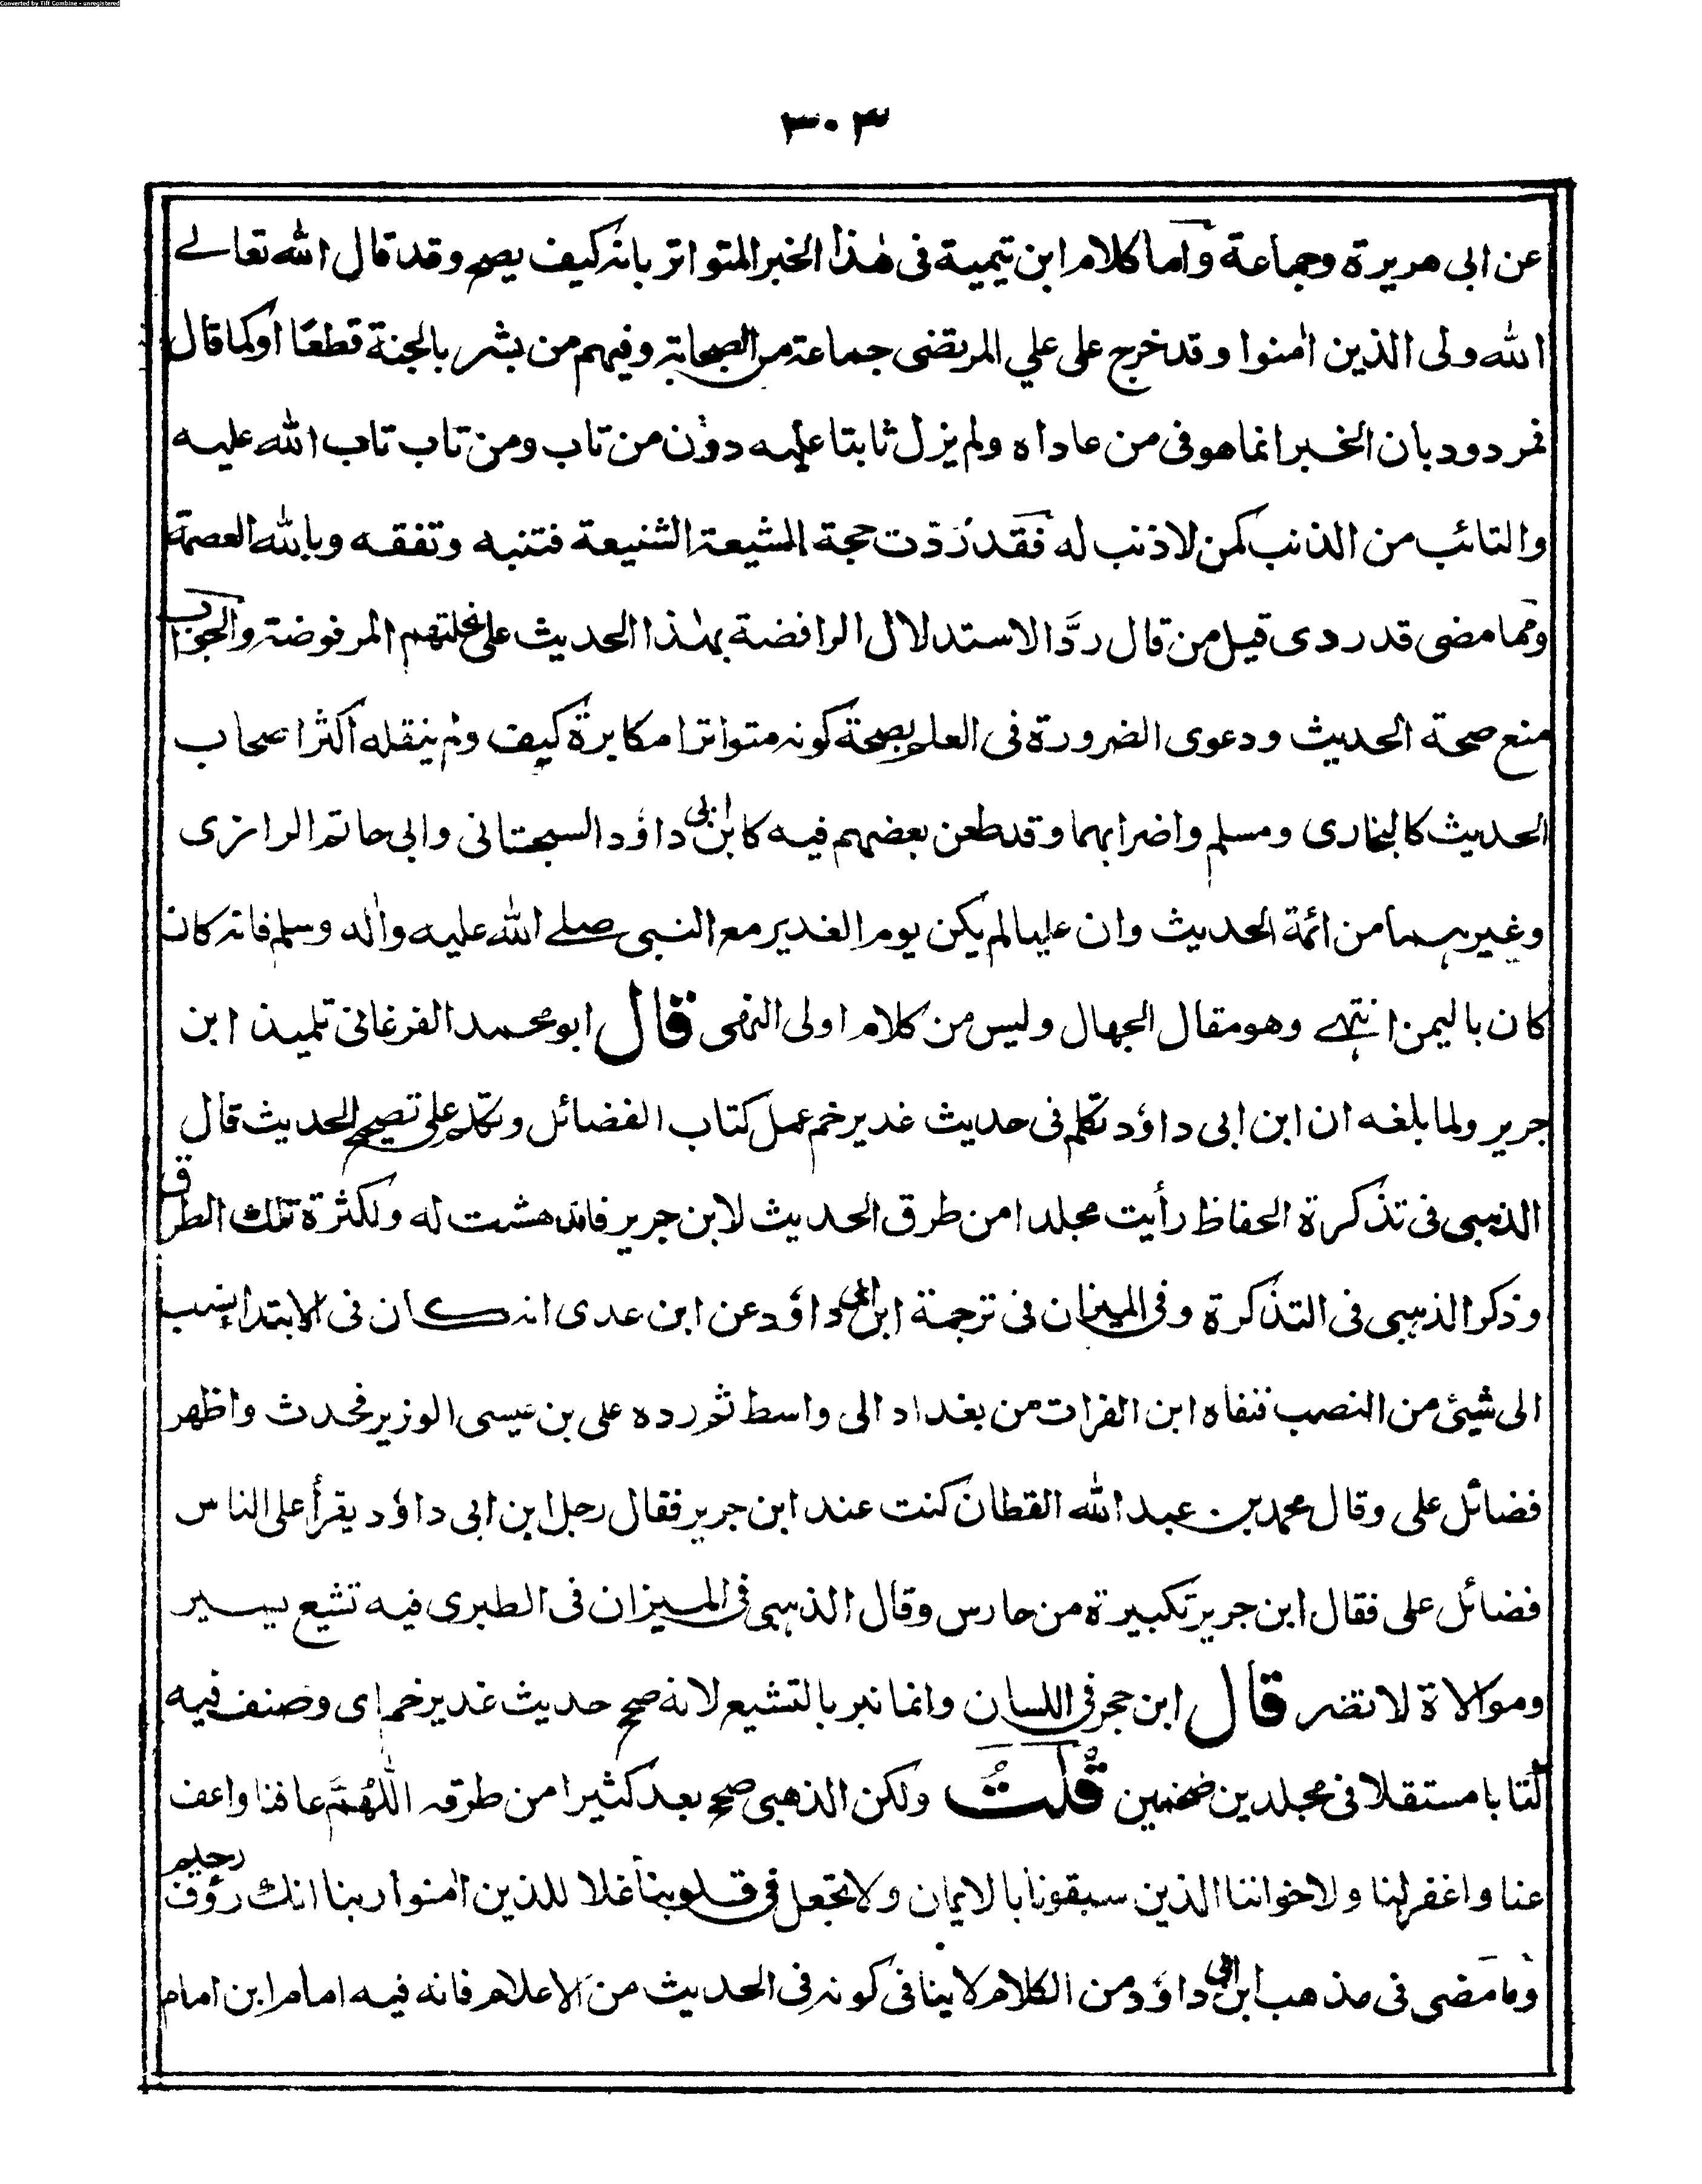 Converted by Tiff Combine - unregistered
٣٠٣
عن ابى هريرة وجماعة وآما كلام ابن تيمية فى هٰذا الخبر المتواتر بانه كيف يصح وقد قال الله تعالے
الله ولى الذين اٰمنوا وقد خرج على علي المرتضى جماعة من الصحابة وفيهم من بشر بالجنة قطعًا اوكما قال
فمردود بان الخبر انما هو فى من عاداه ولم يزل ثابتا عليه دون من تاب ومن تاب تاب الله عليه
والتائب من الذنب كمن لا ذنب له فقد رُدّت حجة الشيعة الشنيعة فتنبه وتفقه وبالله العصمة
ومما مضى قد ردى قيل من قال ردًّا لاستدلال الرافضة بهٰذا الحديث على نحلتهم المرفوضة والجواب
منع صحة الحديث ودعوى الضرورة فى العلم بصحة كونه متواترا مكابرة كيف ولم ينقله اكثر اصحاب
الحديث كالبخارى ومسلم واضرابهما وقد طعن بعضهم فيه كابن ابى داؤد السجستانى وابى حاتم الرازى
وغيرهما من ائمة الحديث وان عليا لم يكن يوم الغدير مع النبى صلے الله عليه واٰله وسلم فانه كان
كان باليمن انتهے وهو مقال الجهال وليس من كلام اولى النهى قال ابو محمد الفرغانى تلميذ ابن
جرير ولما بلغه ان ابن ابى داؤد تكلم فى حديث غدير خم عمل كتاب الفضائل وتكلم على تصحيح الحديث قال
الذهبى فى تذكرة الحفاظ رأيت مجلدا من طرق الحديث لابن جرير فاندهشت له ولكثرة تلك الطرق
وذكر الذهبى فى التذكرة وفى الميزان فى ترجمة ابن ابى داؤد عن ابن عدى انه كان فى الابتدا ينسب
الى شيئ من النصب فنفاه ابن الفرات من بغداد الى واسط ثم رده على بن عيسى الوزير فحدث واظهر
فضائل على وقال محمد بن عبد الله القطان كنت عند ابن جرير فقال رجل ابن ابى داؤد يقرأ على الناس
فضائل على فقال ابن جرير تكبيرة من حارس وقال الذهبى فى الميزان فى الطبرى فيه تشيع يسير
وموالاة لا تضر قال ابن حجر فى اللسان وانما نبر بالتشيع لانه صحح حديث غدير خم اى وصنف فيه
كتابا مستقلا فى مجلدين ضخمين قُلتُ ولكن الذهبى صحح بعد كثيرا من طرقه اللّٰهُمَّ عافنا واعف
عنا واغفر لنا ولاخواننا الذين سبقونا بالايمان ولا تجعل فى قلوبنا غلا للذين اٰمنوا ربنا انك رؤف رحيم
وما مضى فى مذهب ابن ابى داؤد من الكلام لا ينافى كونه فى الحديث من الاعلام فانه فيه امام ابن امام